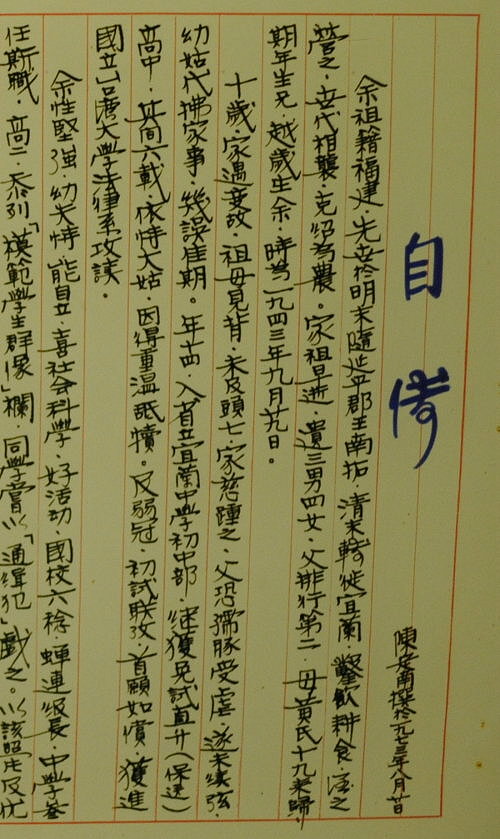 自傳
陳定南撰於一九七三年八月廿日
余祖籍福建.先世於明末隨延平郡王南拓.清末轉徙宜蘭.鑿飲耕食.居之
營之.世代相襲.克紹為農。家祖早逝.遺三男四女.父排行第二.毋黃氏十九來歸
期年生兄.越歲生余.時為一九四三年九月廿九日。
十歲.家遇變故.祖毋見背.未及頭七.家慈踵之.父恐孺豚受虐.遂未續弦.
幼姑代拂家事.幾誤佳期。年十四.入省立宜蘭中學初中部.繼獲免試直升(保送)
高中.其間六載.依恃大姑.因得重溫舐犢。及弱冠.初試聯攷.首願如償.獲進
國立台灣大學法律系攻讀.
余性堅強.幼失恃能自立.喜社會科學.好活动.國校六稔.蟬連級長.中學叁
任斯職.高二.忝列「模範學生群像」欄.同學嘗以「通緝犯」戲之。以該照片及优